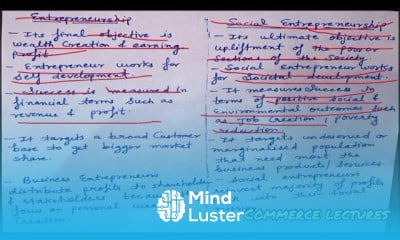 Entrepreneurship
- Its final objective is
wealth creation & earning
profit.
- Entrepreneur works for
self development.
- Success is measured in
financial terms such as
revenue & profit.
- It targets a broad customer
base to get bigger market
share.
- Business Entrepreneurs
distribute profits to shareholder
& stakeholders
focus on personal
creation
Social Entrepreneurship
- Its ultimate objective is
upliftment of the poor or
section of the society
- Social Entrepreneur works
for societal development.
- It measures success in
terms of positive social &
Environmental outcomes such
as Job creation, poverty
reduction.
- It targets underserved or
marginalised population
that need most the
business products/services.
- Social entrepreneurs
reinvest majority of profits
back into their social
Mind
Luster
COMMERCE LECTURES